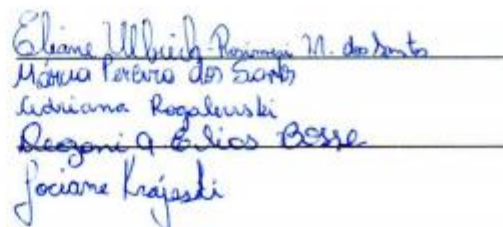 Eliane Ulbrich - Rosimeri M. dos Santos
Márcia Pereira dos Santos
Adriana Rogalewski
A Elias Bosse
Jociane Krajeski